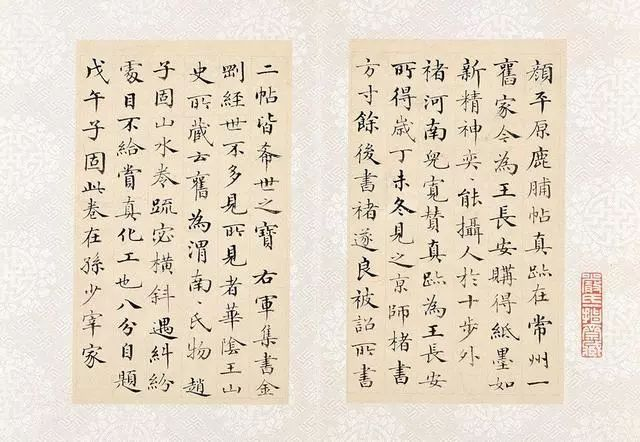 顏平原鹿脯帖真跡在常州一
舊家今為王長安購得紙墨如
新精神奕〻能攝人於十步外
褚河南兒寬贊真跡為王長安
所得歲丁未冬見之京師楮書
方寸餘後書褚遂良被詔所書
二帖皆希世之寶右軍集書金
剛經世不多見所見者華陰王山
史所藏云舊為渭南〻氏物趙
子固山水卷疏密橫斜遇糾紛
處目不給賞真化工也八分自題
戊午子固此卷在孫少宰家